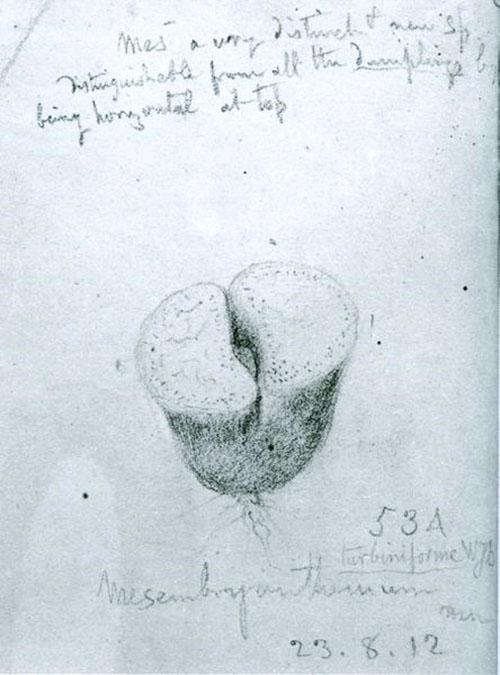 Mes a very distinct & new sp.
distinguishable from all the dumplings
being horizontal at top
53A
turbiniforme
Mesembryanthemum
23.8.12